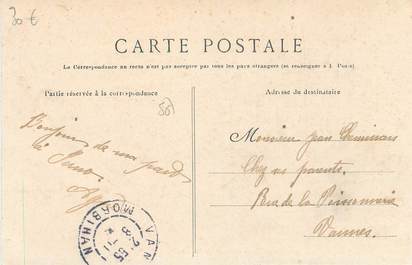 30 €
CARTE POSTALE
La Correspondance au recto n'est pas acceptée par tous les pays étrangers (se renseigner à la Poste)
Partie réservée à la correspondance
Adresse du destinataire
56
Bonjour de
à
Monsieur Jean
Chez ses parents.
Rue de la Poissonnerie
Vannes.
MORBIHAN